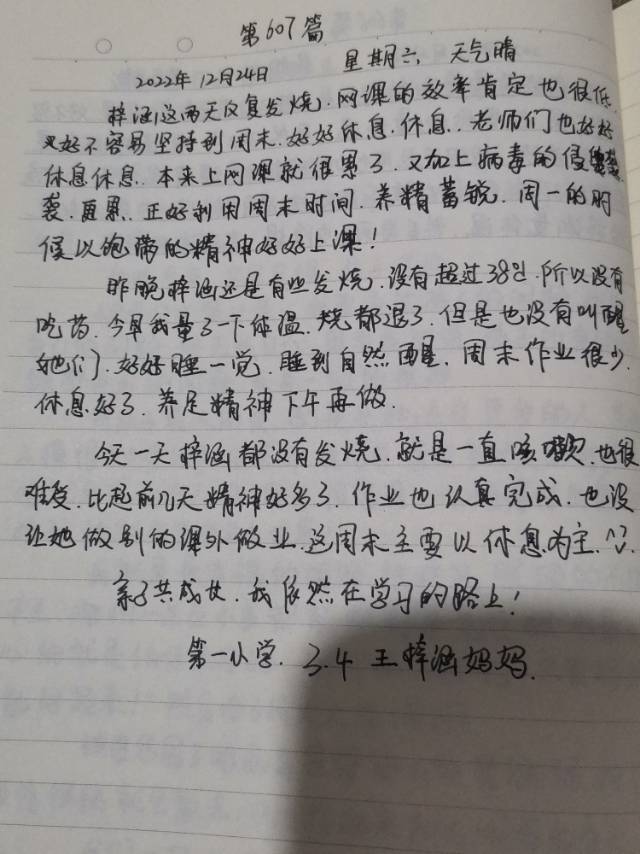 第607篇
2022年12月24日 星期六 天气晴
梓涵这两天反复发烧.网课的效率肯定也很低.
好不容易坚持到周末.好好休息.休息.老师们也好好
休息休息.本来上网课就很累了.又加上病毒的侵
袭.更累.正好利用周末时间.养精蓄锐.周一的时
候以饱带的精神好好上课!
昨晚梓涵还是有些发烧.没有超过38度.所以没有
吃药.今早我量了一下体温.烧都退了.但是也没有叫醒
她们.好好睡一觉.睡到自然醒.周末作业很少.
休息好了.养足精神下午再做.
今天一天梓涵都没有发烧.就是一直咳嗽.也很
难受.比起前几天精神好多了.作业也认真完成.也没
让她做别的课外做业.这周末主要以休息为主.
亲子共成长.我依然在学习的路上!
第一小学.3.4 王梓涵妈妈.